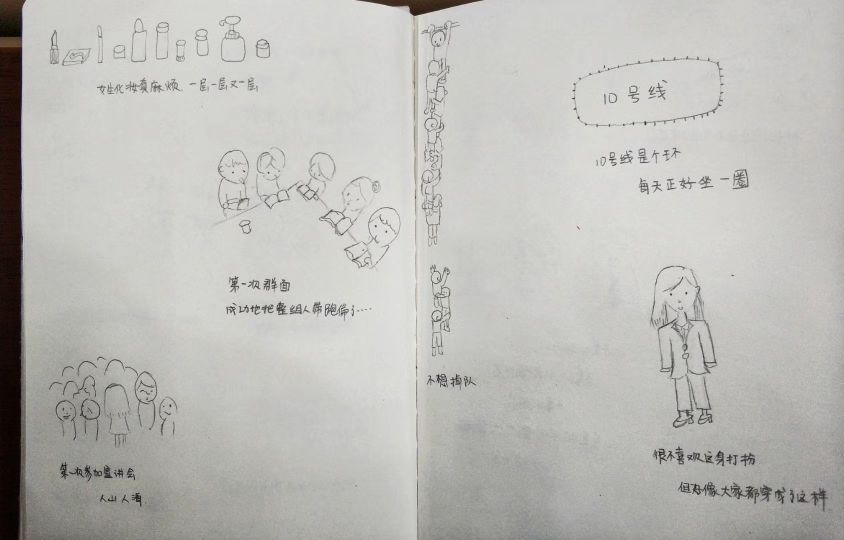 女生化妆真麻烦 一层一层又一层
第一次群面
成功地把整组人带跑偏了....
第一次参加宣讲会
人山人海
不想掉队
10号线
10号线是个环
每天正好坐一圈
很不喜欢这身打扮
但好像大家都穿成了这样